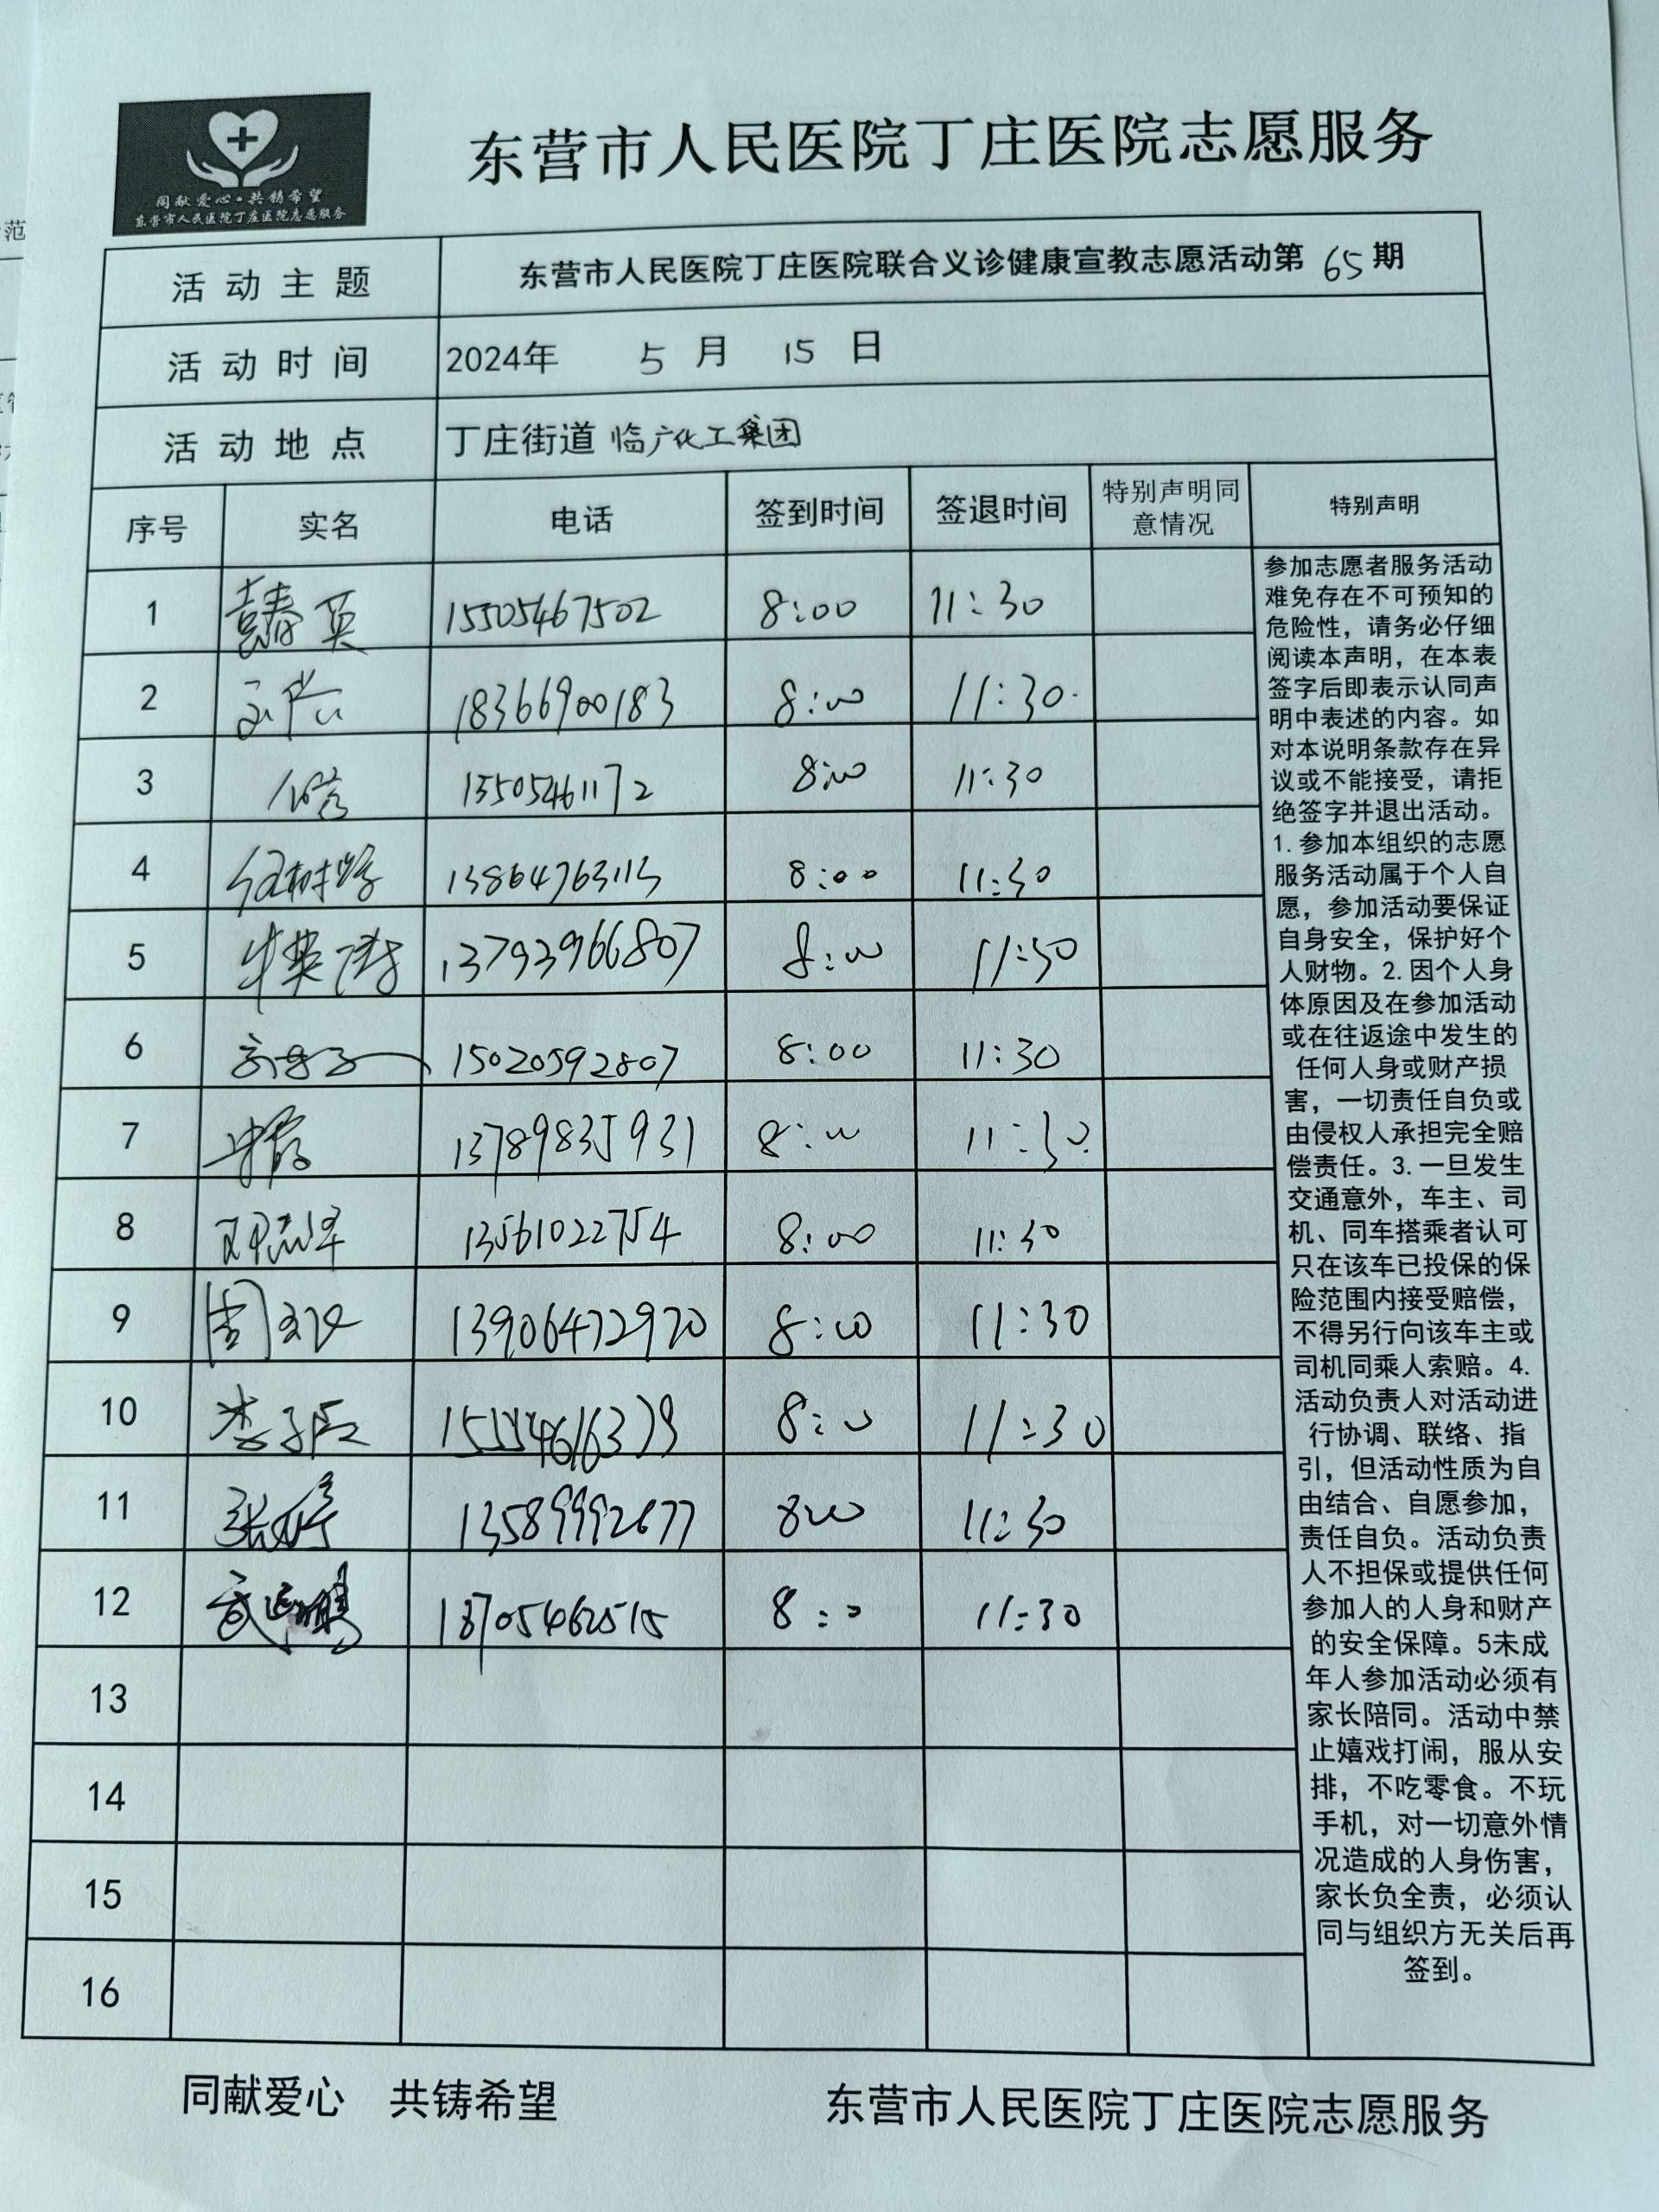 同献爱心·共铸希望
东营市人民医院丁庄医院志愿服务
东营市人民医院丁庄医院志愿服务
活动主题 东营市人民医院丁庄医院联合义诊健康宣教志愿活动第 65 期
活动时间 2024年 5 月 15 日
活动地点 丁庄街道 临广化工集团
序号 实名 电话 签到时间 签退时间 特别声明同意情况 特别声明
1 15505467502 8:00 11:30
2 18366900183 8:00 11:30
3 13505461172 8:00 11:30
4 13864763113 8:00 11:30
5 13793966807 8:00 11:30
6 15020592807 8:00 11:30
7 13789835931 8:00 11:30
8 13561022754 8:00 11:30
9 13906472970 8:00 11:30
10 李 8:00 11:30
11 张婷 13589992677 8:00 11:30
12 武 18705462515 8:00 11:30
13
14
15
16
参加志愿者服务活动
难免存在不可预知的
危险性，请务必仔细
阅读本声明，在本表
签字后即表示认同声
明中表述的内容。如
对本说明条款存在异
议或不能接受，请拒
绝签字并退出活动。
1.参加本组织的志愿
服务活动属于个人自
愿，参加活动要保证
自身安全，保护好个
人财物。2.因个人身
体原因及在参加活动
或在往返途中发生的
任何人身或财产损
害，一切责任自负或
由侵权人承担完全赔
偿责任。3.一旦发生
交通意外，车主、司
机、同车搭乘者认可
只在该车已投保的保
险范围内接受赔偿，
不得另行向该车主或
司机同乘人索赔。4.
活动负责人对活动进
行协调、联络、指
引，但活动性质为自
由结合、自愿参加，
责任自负。活动负责
人不担保或提供任何
参加人的人身和财产
的安全保障。5未成
年人参加活动必须有
家长陪同。活动中禁
止嬉戏打闹，服从安
排，不吃零食。不玩
手机，对一切意外情
况造成的人身伤害，
家长负全责，必须认
同与组织方无关后再
签到。
同献爱心 共铸希望
东营市人民医院丁庄医院志愿服务